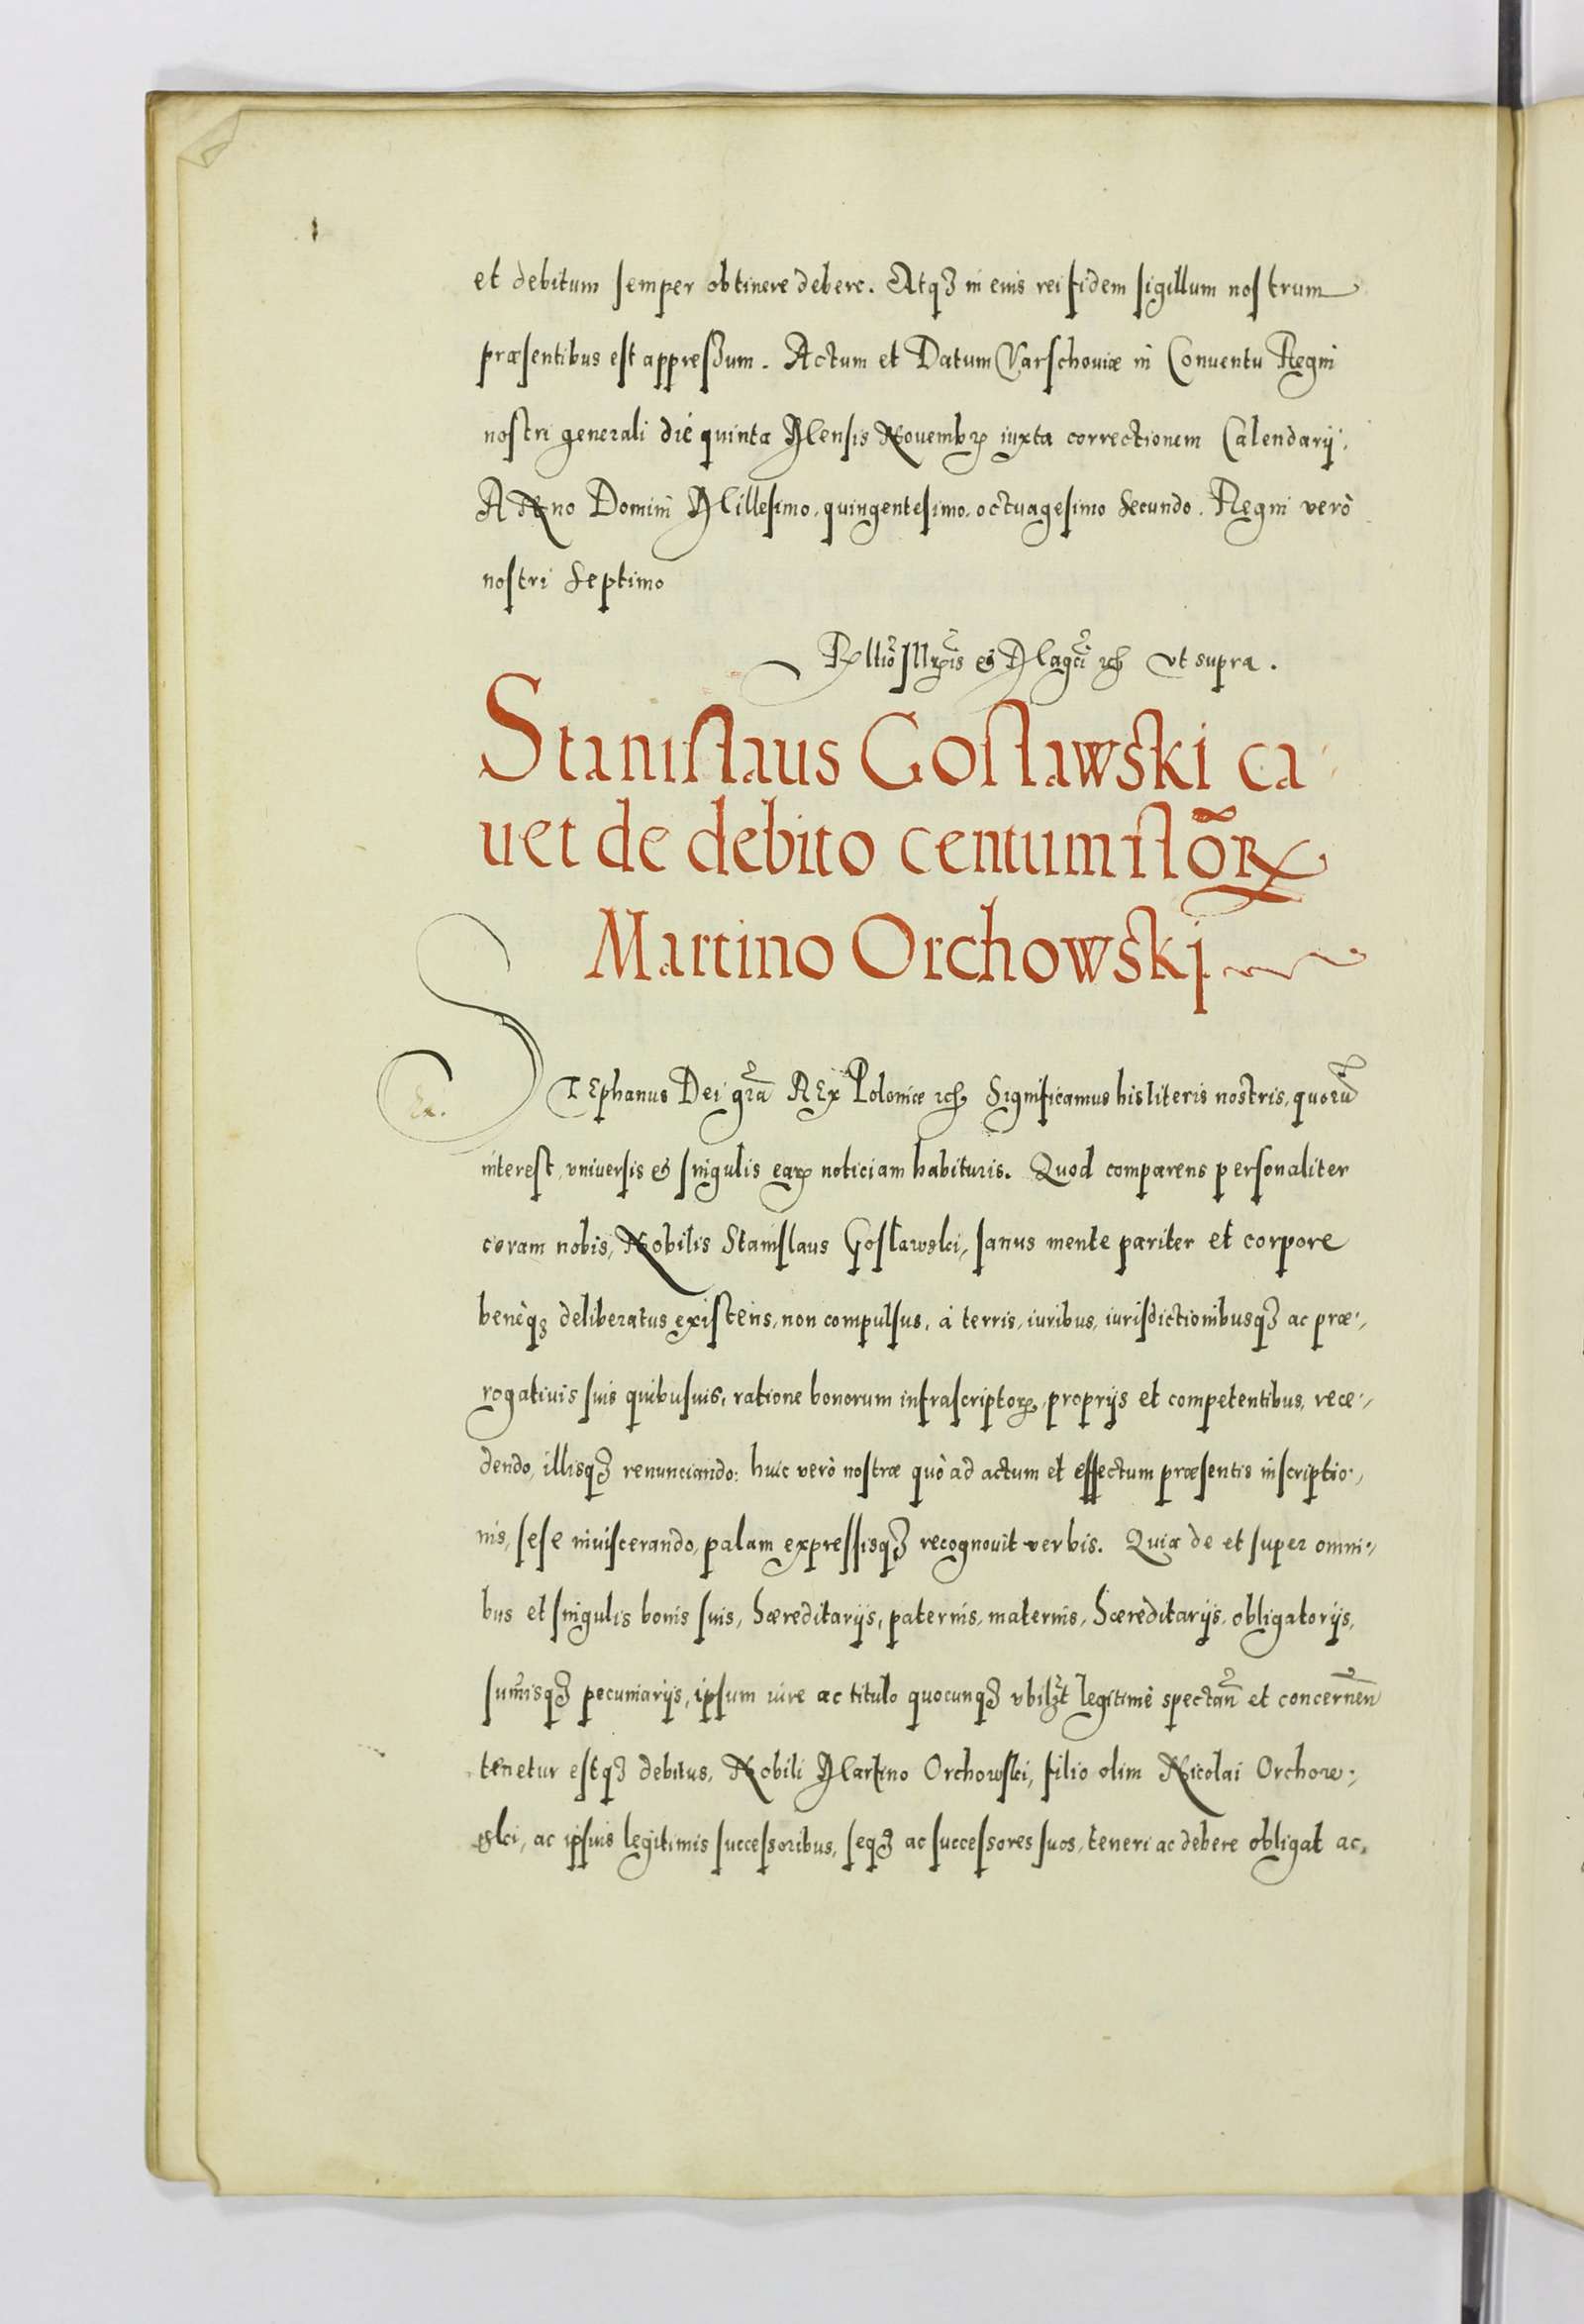 et debitum semper obtinere debere. Atqꝫ in eius rei fidem sigillum nostrum
præsentibus est appressum. Actum et Datum Varschouiæ in Conuentu Regni
nostri generali die quinta Mensis Nouembrꝝ iuxta correctionem Calendarij,
ANno Domini Millesimo, quingentesimo, octuagesimo secundo. Regni verò
nostri septimo
Rltio Illris et Magci etc ut supra.
Stanislaus Gosławski ca-
uet de debito centum florꝝ
Martino Orchowskj
STEphanus Dei gra REx Poloniæ etc. Significamus his literis nostris, quorū
Ex.
interest, vniuersis et singulis earꝝ noticiam habituris. Quod comparens personaliter
coram nobis, Nobilis Stanislaus Gosławski, sanus mente pariter et corpore
benèqꝫ deliberatus existens, non compulsus, à terris, iuribus, iurisdictionibusqꝫ ac præ-
rogatiuis suis quibusuis, ratione bonorum infrascriptorꝝ, proprijs et competentibus, rece-
dendo, illisqꝫ renunciando: huic verò nostræ quò ad actum et effectum præsentis inscriptio-
nis, sese inuiscerando, palam expressisqꝫ recognouit verbis. Quia de et super omni-
bus et singulis bonis suis, hæreditarijs, paternis, maternis, hæreditarijs, obligatorijs,
sumisqꝫ pecuniarijs, ipsum iure ac titulo quocunqꝫ vbilꝫt legitimè spectan̄ et concernen̄
tenetur estqꝫ debitus, Nobili Martino Orchowski, filio olim Nicolai Orchow-
ski, ac ipsius legitimis successoribus, seqꝫ ac successores suos, teneri ac debere obligat ac,